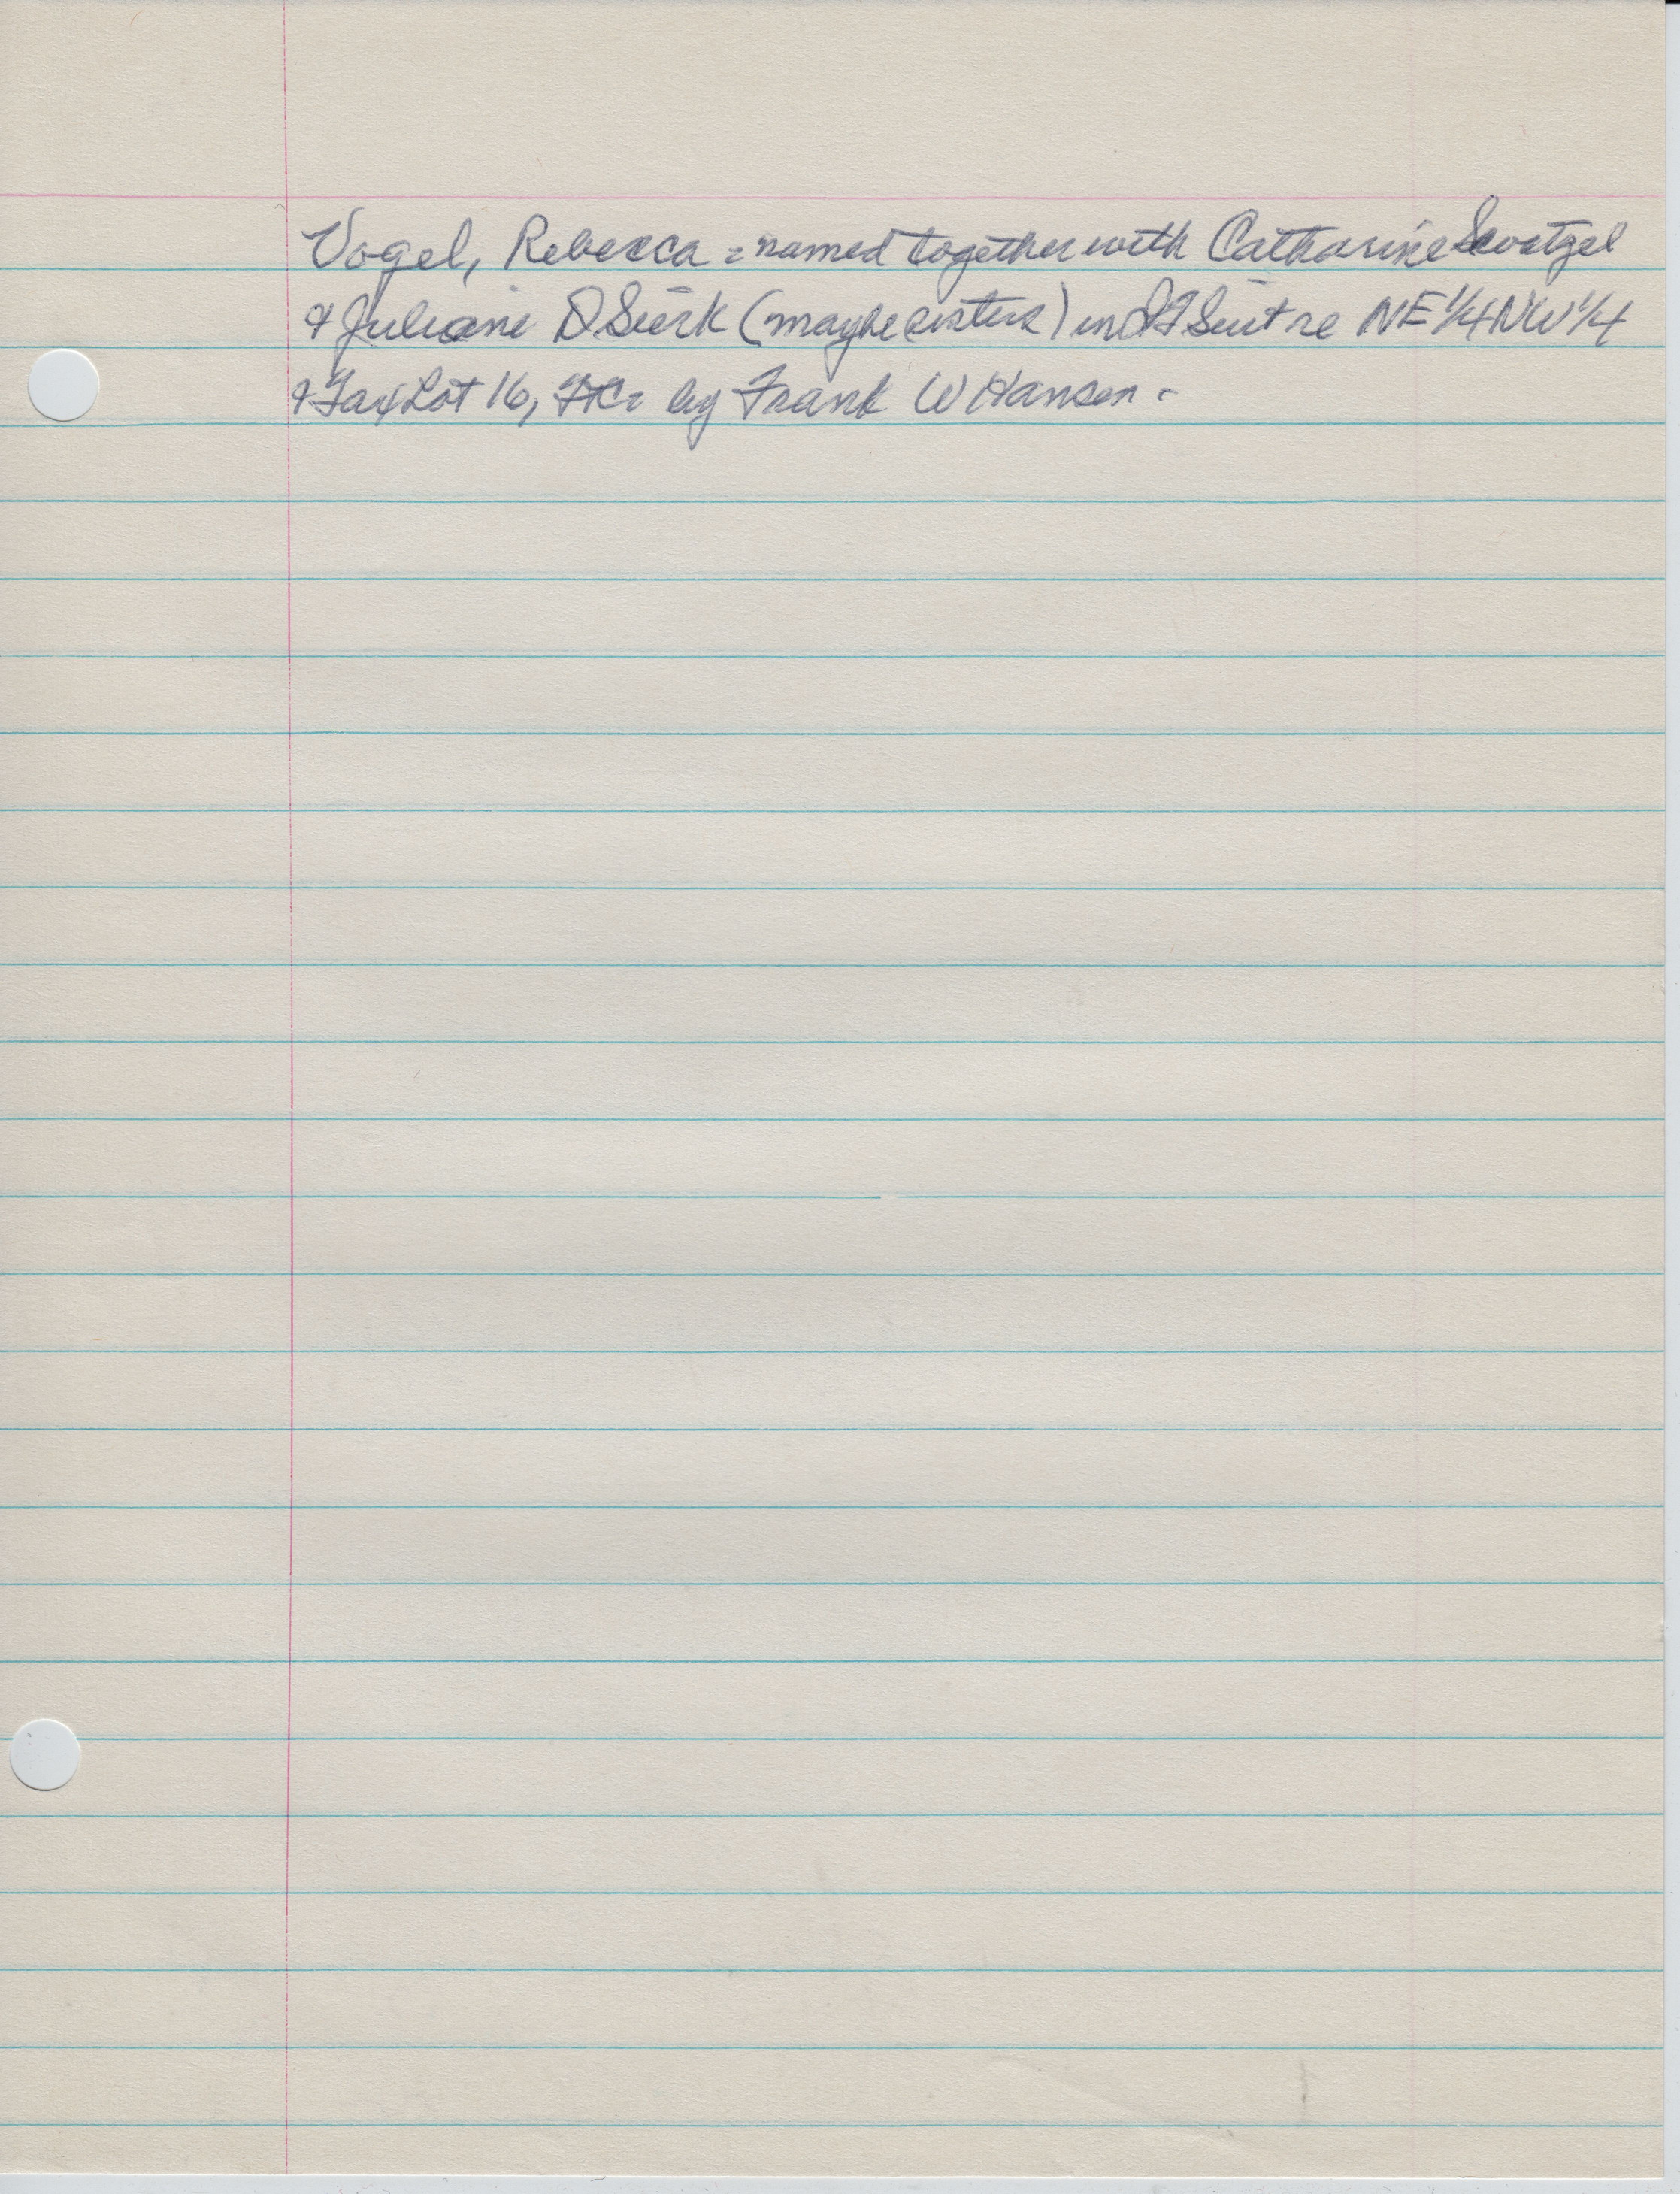 Vogel, Rebecca = named together with Catharine Swatzel
& Juliane D Sierk (maybe sisters) in QT Suit re NE 1/4 NW 1/4
& Tax Lot 16, by Frank W Hansen -